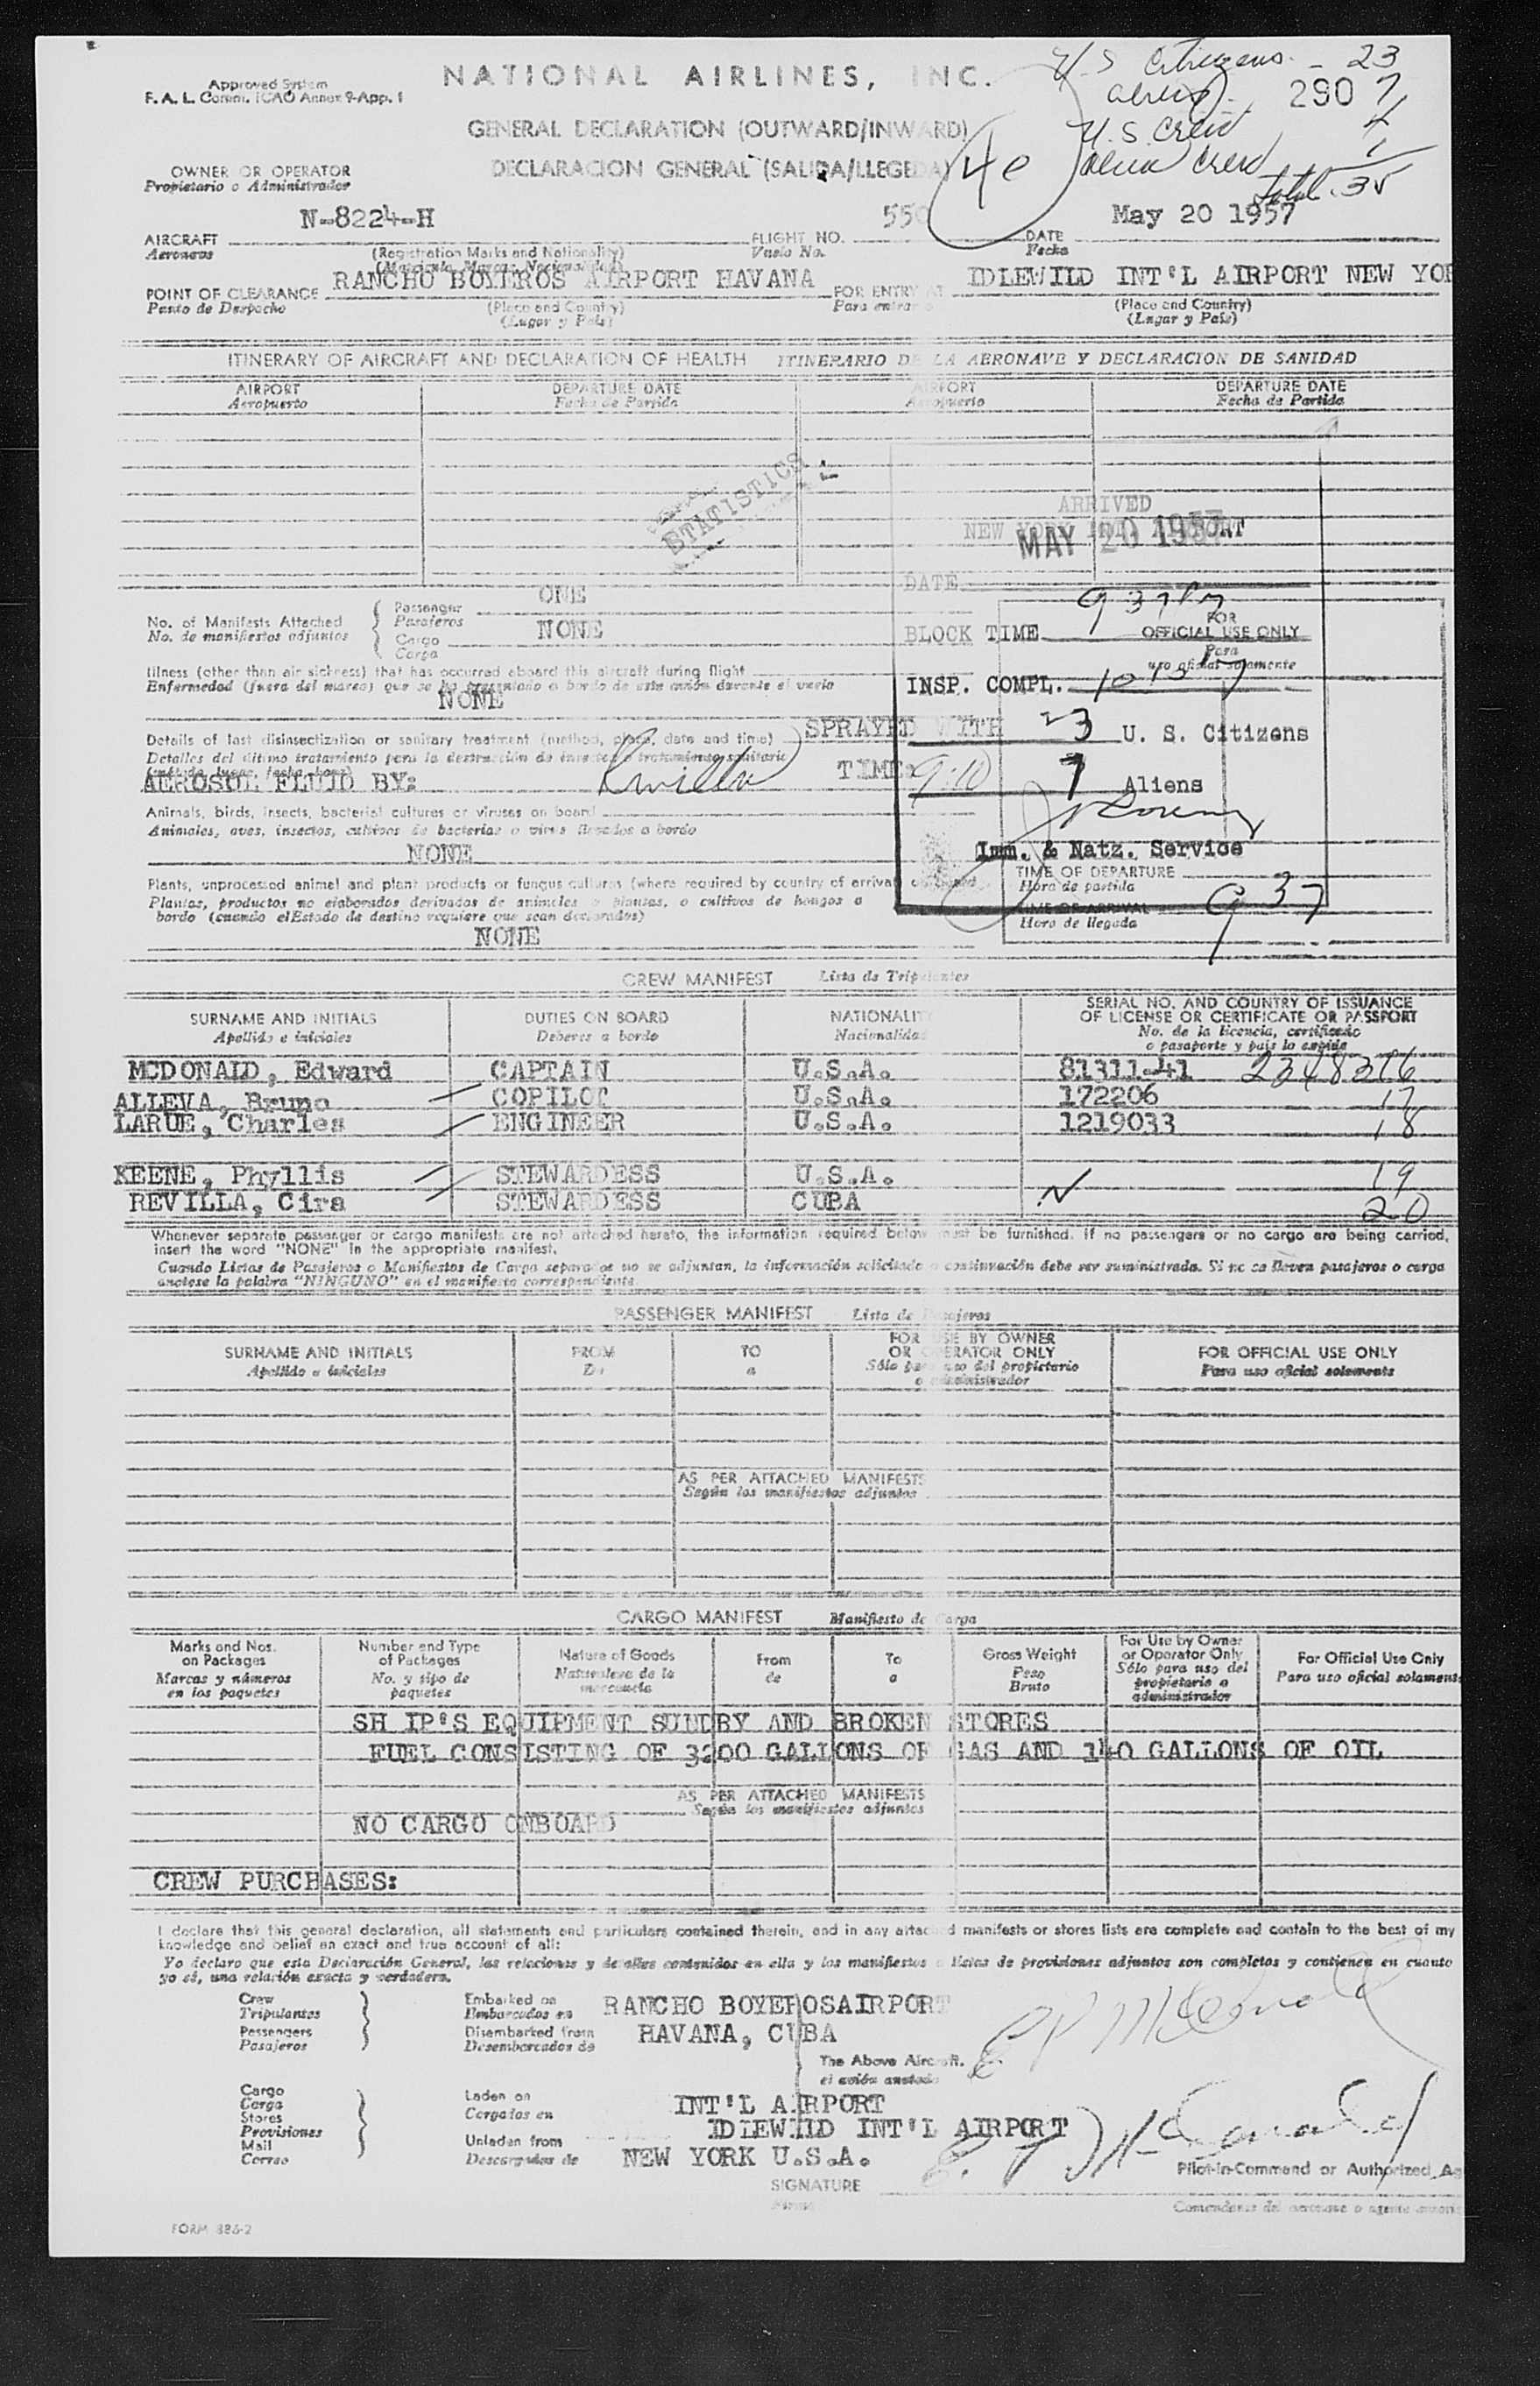 Approved System
F. A. L. Comm. ICAO Annex 9-App. 1
NATIONAL AIRLINES, INC.
U.S Citizens - 23
aliens - 7
290
U.S. Crew 4
alien Crew 1
Total. 35
4e
GENERAL DECLARATION (OUTWARD/INWARD)
DECLARACION GENERAL (SALIDA/LLEGEDA)
OWNER OR OPERATOR
Propietario o Administrador
N-8224-H 550 May 20 1957
AIRCRAFT FLIGHT NO. DATE
Aeronave (Registration Marks and Nationality) Vuelo No. Fecha
RANCHO BOYEROS AIRPORT HAVANA IDLEWILD INT'L AIRPORT NEW YOR
POINT OF CLEARANCE FOR ENTRY AT
Punto de Despacho (Place and Country) Para entrar a (Place and Country)
(Lugar y País) (Lugar y País)
ITINERARY OF AIRCRAFT AND DECLARATION OF HEALTH ITINERARIO DE LA AERONAVE Y DECLARACION DE SANIDAD
AIRPORT DEPARTURE DATE AIRPORT DEPARTURE DATE
Aeropuerto Fecha de Partida Aeropuerto Fecha de Partida
STATISTICS
ARRIVED
NEW YORK INT'L AIRPORT
MAY 20 1957
DATE
ONE
No. of Manifests Attached Passenger
No. de manifiestos adjuntos Pasajeros
NONE
Cargo
Carga
BLOCK TIME 9 37 P
FOR
OFFICIAL USE ONLY
Para
uso oficial solamente
Illness (other than air sickness) that has occurred aboard this aircraft during flight
Enfermedad (fuera del mareo) que se ha presentado a bordo de este avión durante el vuelo
NONE
INSP. COMPL. 10 15 P
Details of last disinsectization or sanitary treatment (method, place, date and time) SPRAYED WITH
23 U. S. Citizens
Detalles del último tratamiento para la destrucción de insectos o tratamiento sanitario
AEROSOL FLUID BY: TIME: 9:10
7 Aliens
Animals, birds, insects, bacterial cultures or viruses on board
Animales, aves, insectos, cultivos de bacterias o virus llevados a bordo
NONE
Imm. & Natz. Service
Plants, unprocessed animal and plant products or fungus cultures (where required by country of arrival) on board
Plantas, productos no elaborados derivados de animales o plantas, o cultivos de hongos a
bordo (cuando el Estado de destino requiere que sean declarados)
NONE
TIME OF DEPARTURE
Hora de partida
TIME OF ARRIVAL 9 37
Hora de llegada
CREW MANIFEST Lista de Tripulantes
SURNAME AND INITIALS DUTIES ON BOARD NATIONALITY SERIAL NO. AND COUNTRY OF ISSUANCE
OF LICENSE OR CERTIFICATE OR PASSPORT
Apellido e iniciales Deberes a bordo Nacionalidad No. de la licencia, certificado
o pasaporte y país lo expide
MCDONALD, Edward CAPTAIN U.S.A. 81311-41 2348316
ALLEVA, Bruno COPILOT U.S.A. 172206 17
LARUE, Charles ENGINEER U.S.A. 1219033 18
KEENE, Phyllis STEWARDESS U.S.A. 19
REVILLA, Cira STEWARDESS CUBA 20
Whenever separate passenger or cargo manifests are not attached hereto, the information required below must be furnished. If no passengers or no cargo are being carried,
insert the word "NONE" in the appropriate manifest.
Cuando Listas de Pasajeros o Manifiestos de Carga separados no se adjuntan, la información solicitada a continuación debe ser suministrada. Si no se llevan pasajeros o carga
anotese la palabra "NINGUNO" en el manifiesto correspondiente.
PASSENGER MANIFEST Lista de Pasajeros
SURNAME AND INITIALS FROM TO FOR USE BY OWNER FOR OFFICIAL USE ONLY
OR OPERATOR ONLY
Apellido e iniciales De a Sólo para uso del propietario Para uso oficial solamente
o administrador
AS PER ATTACHED MANIFESTS
Según los manifiestos adjuntos
CARGO MANIFEST Manifiesto de Carga
Marks and Nos. on Packages Number and Type of Packages Nature of Goods From To Gross Weight For Use by Owner or Operator Only For Official Use Only
Marcas y números en los paquetes No. y tipo de paquetes Naturaleza de la mercancía de a Peso Bruto Sólo para uso del propietario o administrador Para uso oficial solament
SH IP'S EQUIPMENT SUNDRY AND BROKEN STORES
FUEL CONSISTING OF 3200 GALLONS OF GAS AND 140 GALLONS OF OIL
AS PER ATTACHED MANIFESTS
Según los manifiestos adjuntos
NO CARGO ONBOARD
CREW PURCHASES:
I declare that this general declaration, all statements and particulars contained therein, and in any attached manifests or stores lists are complete and contain to the best of my
knowledge and belief an exact and true account of all:
Yo declaro que esta Declaración General, las relaciones y detalles contenidos en ella y los manifiestos o listas de provisiones adjuntos son completos y contienen en cuanto
yo sé, una relación exacta y verdadera.
Crew Embarked on RANCHO BOYEROSAIRPORT
Tripulantes Embarcados en
Passengers Disembarked from HAVANA, CUBA
Pasajeros Desembarcados de
The Above Aircraft.
el avión anotado
E J McDonald
Cargo Laden on INT'L AIRPORT
Carga Cargatos en
Stores IDLEWILD INT'L AIRPORT
Provisiones
Mail Unladen from NEW YORK U.S.A.
Correo Descargados de
E. J McDonald
Pilot-in-Command or Authorized Ag
SIGNATURE
Firma
Comandante del aeronave o agente autori
FORM 886-2